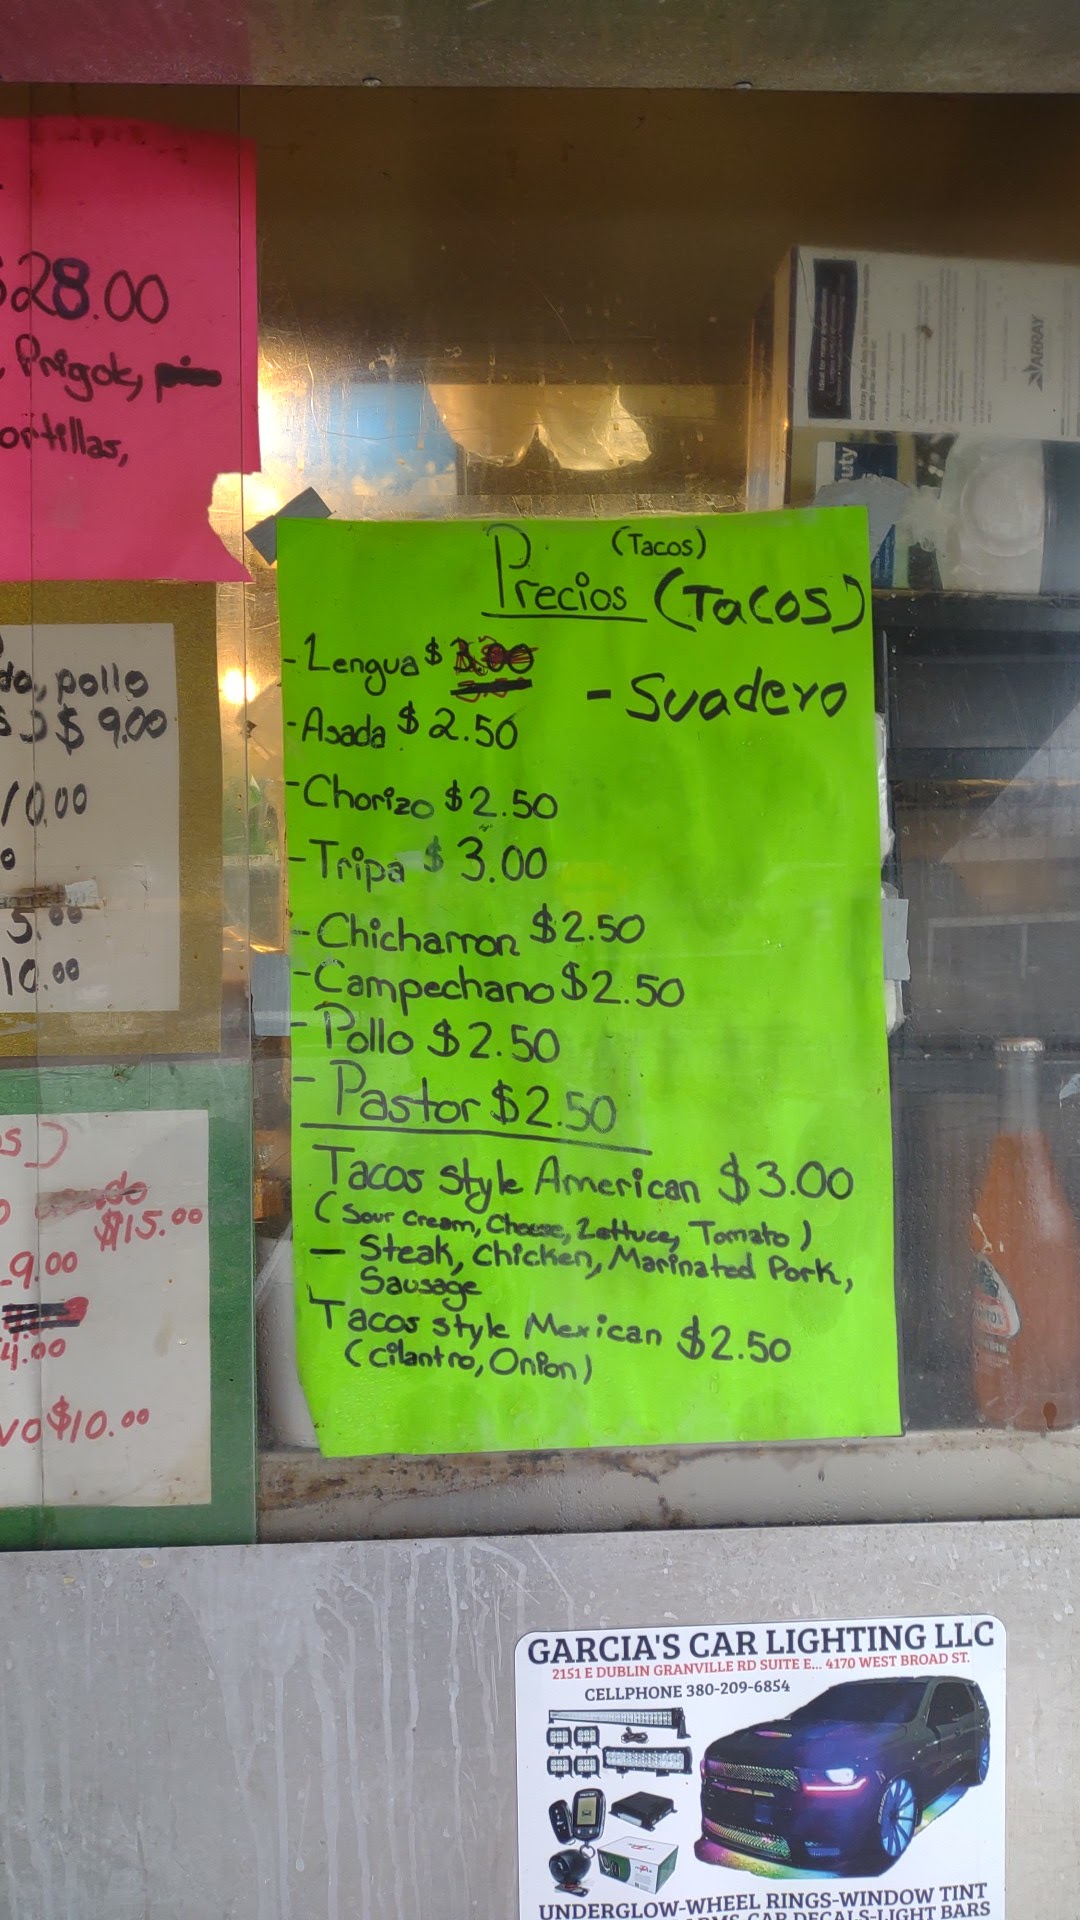 $28.00
Prigole,
ortillas,
do, pollo
$ 9.00
10.00
5.00
10.00
$15.00
9.00
4.00
vo $10.00
(Tacos)
Precios (Tacos)
- Lengua $
- Suadero
- Asada $2.50
- Chorizo $2.50
- Tripa $3.00
- Chicharron $2.50
- Campechano $2.50
- Pollo $2.50
- Pastor $2.50
Tacos style American $3.00
(Sour Cream, Cheese, Lettuce, Tomato)
- Steak, Chicken, Marinated Pork,
Sausage
Tacos style Mexican $2.50
(Cilantro, Onion)
ARRAY
uty
GARCIA'S CAR LIGHTING LLC
2151 E DUBLIN GRANVILLE RD SUITE E... 4170 WEST BROAD ST.
CELLPHONE 380-209-6854
UNDERGLOW-WHEEL RINGS-WINDOW TINT
CAR DECALS-LIGHT BARS